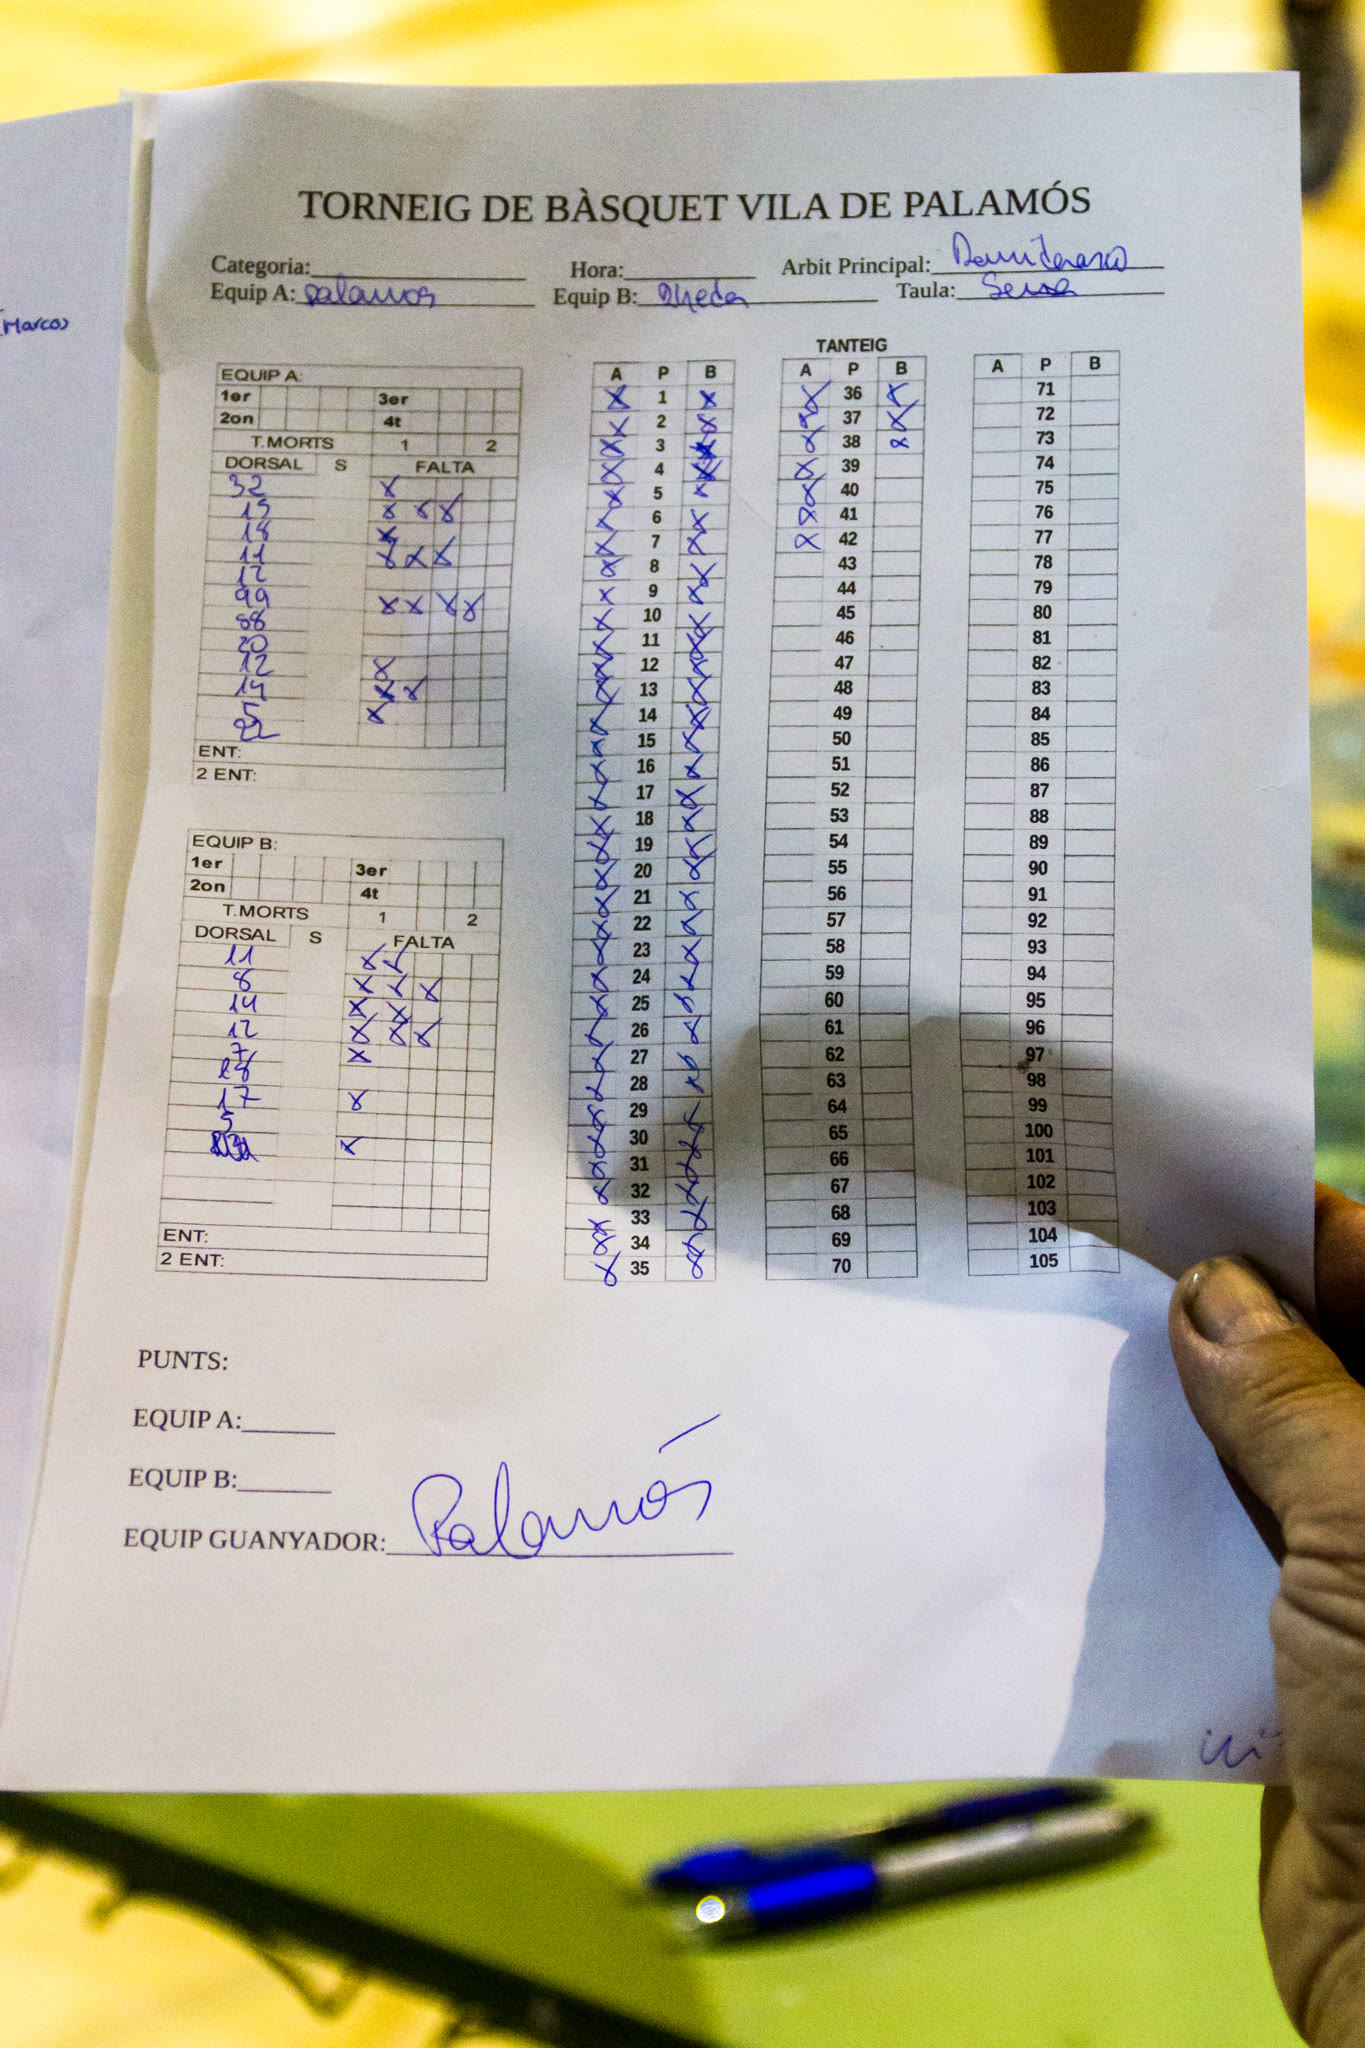 Marcos
TORNEIG DE BÀSQUET VILA DE PALAMÓS
Categoria: Hora: Arbit Principal:
Equip A: Palamos Equip B: Taula:
TANTEIG
EQUIP A:
1er 3er
2on 4t
T.MORTS 1 2
DORSAL S FALTA
32 X
15 X X X
18 X
11 X X X
12
99 X X X X
88
20
12 X
14 X X
5 X
22
ENT:
2 ENT:
EQUIP B:
1er 3er
2on 4t
T.MORTS 1 2
DORSAL S FALTA
11 X X
8 X X X
14 X X
12 X X X
7 X
17 X
5
X
ENT:
2 ENT:
A P B A P B A P B
X 1 X X 36 X 71
X 2 X X 37 X 72
X 3 X X 38 X 73
X 4 X X 39 74
X 5 X X 40 75
X 6 X X 41 76
X 7 X X 42 77
X 8 X 43 78
X 9 X 44 79
X 10 X 45 80
X 11 X 46 81
X 12 X 47 82
X 13 X 48 83
X 14 X 49 84
X 15 X 50 85
X 16 X 51 86
X 17 X 52 87
X 18 X 53 88
X 19 X 54 89
X 20 X 55 90
X 21 X 56 91
X 22 X 57 92
X 23 X 58 93
X 24 X 59 94
X 25 X 60 95
X 26 X 61 96
X 27 X 62 97
X 28 X 63 98
X 29 X 64 99
X 30 X 65 100
X 31 X 66 101
X 32 X 67 102
X 33 X 68 103
X 34 X 69 104
X 35 X 70 105
PUNTS:
EQUIP A:
EQUIP B:
EQUIP GUANYADOR: Palamós